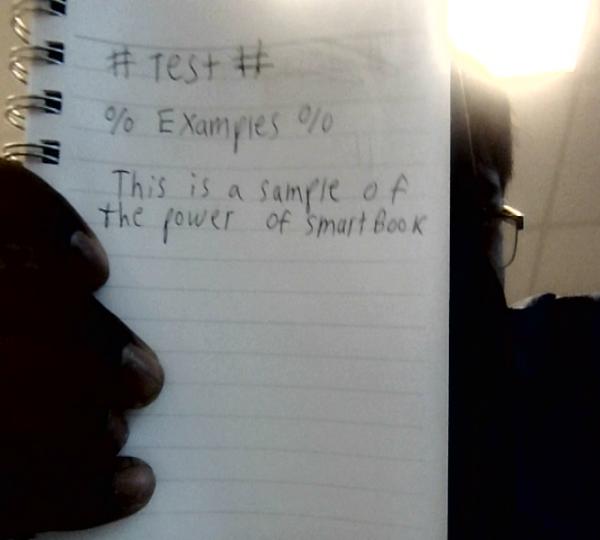 # Test #
% Examples %
This is a sample of
the power of SmartBook